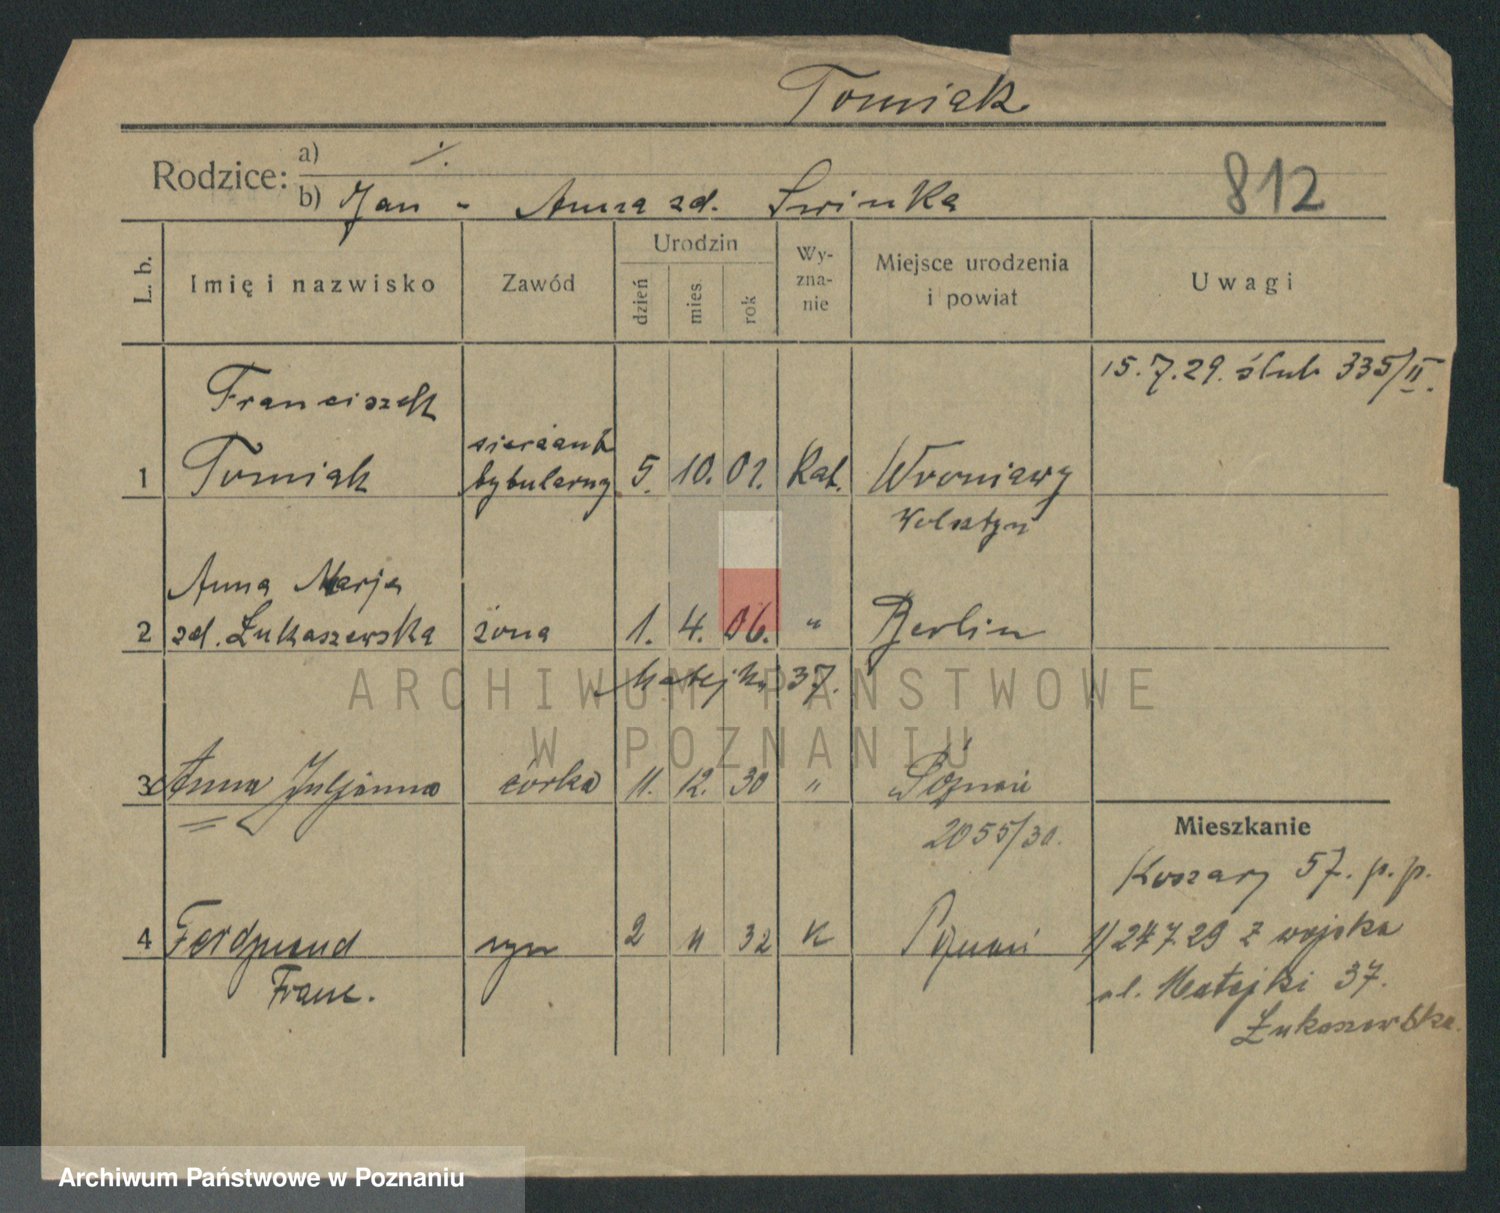 Tomiak
Rodzice: a) ./.
b) Jan - Anna zd. Świnka
812
L. b. Imię i nazwisko Zawód Urodzin dzień mies. rok Wy-zna-nie Miejsce urodzenia i powiat Uwagi
15.7.29. ślub 335/II.
Franciszek
sierżant
1 Tomiak tytularny 5. 10. 01. Kat. Wroniawy
Wolsztyn
Anna Marja
2 zd. Łukaszewska żona 1. 4. 06. " Berlin
Matejki 37.
ARCHIWUM PAŃSTWOWE
W POZNANIU
3 Anna Juljanna córka 11. 12. 30 " Poznań
2055/30.
Mieszkanie
Koszary 57. p. p.
4 Ferdynand syn 2 11 32 K Poznań
Franc.
1) 24 7 29 z wojska
ul. Matejki 37.
Łukaszewska
Archiwum Państwowe w Poznaniu